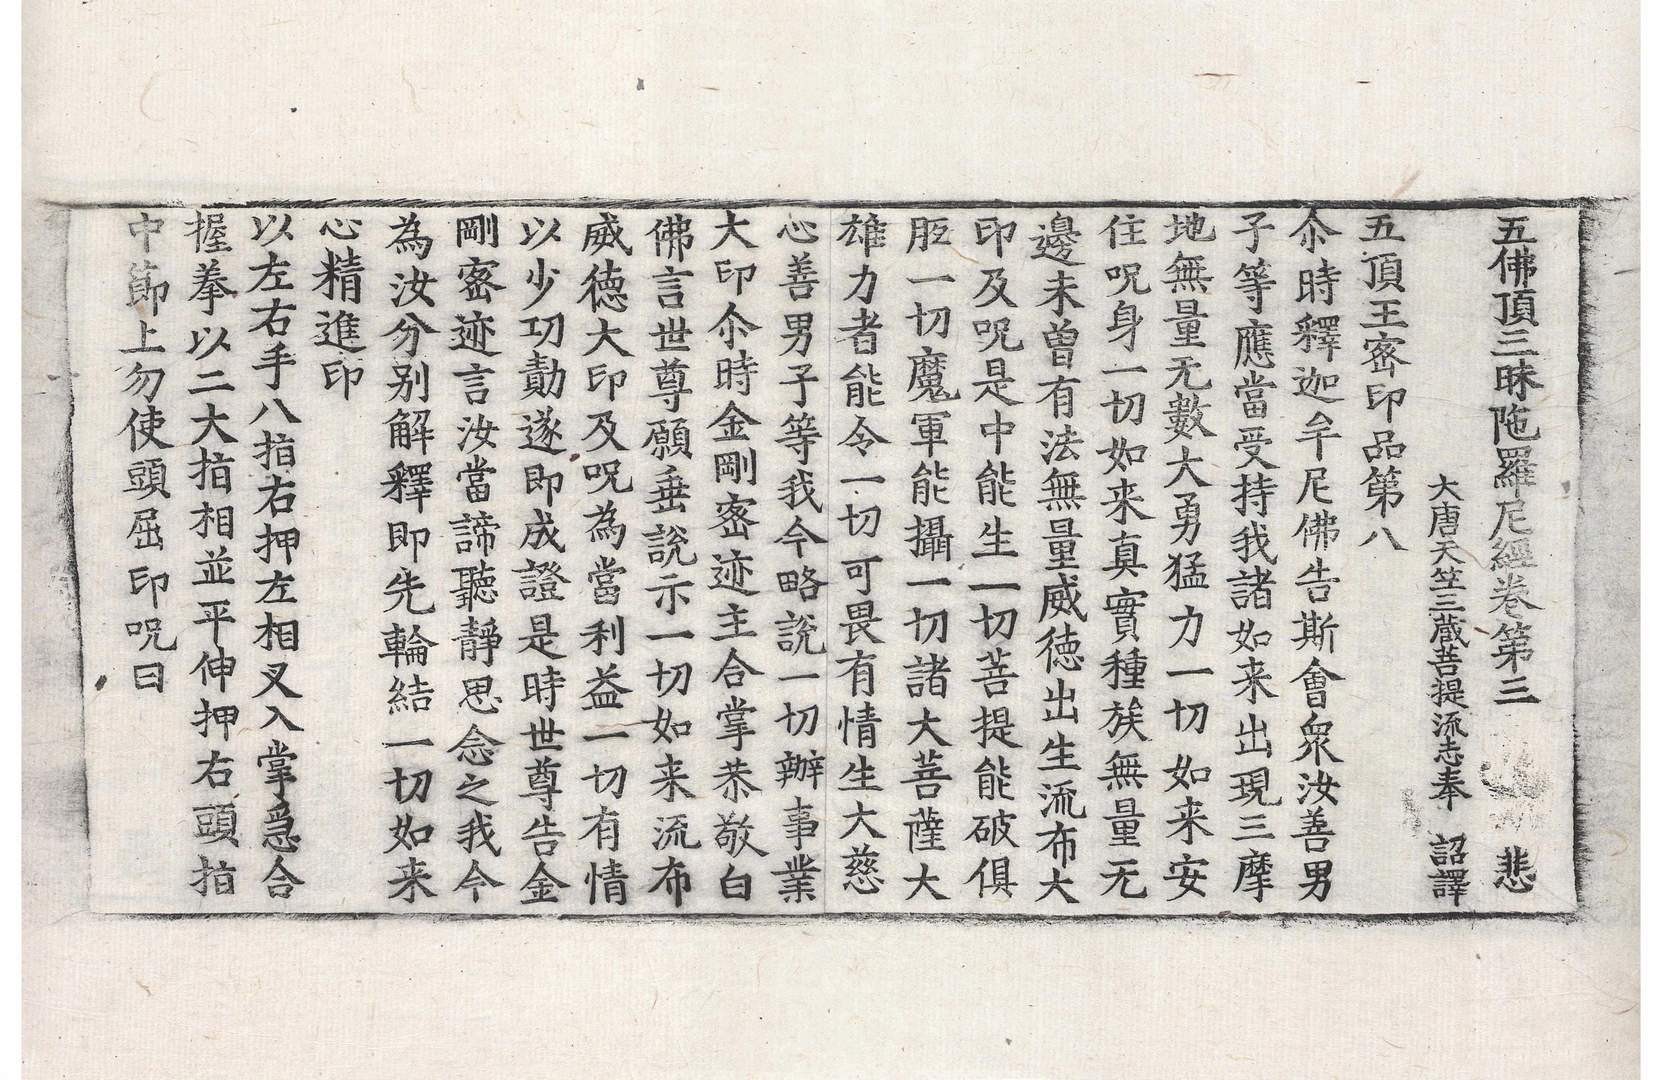 五佛頂三昧陁羅尼經卷第三　悲
大唐天竺三藏菩提流志奉　詔譯
五頂王密印品第八
尒時釋迦牟尼佛告斯會衆汝善男
子等應當受持我諸如来出現三摩
地無量无數大勇猛力一切如来安
住呪身一切如来真實種族無量无
邊未曾有法無量威德出生流布大
印及呪是中能生一切菩提能破俱
胝一切魔軍能攝一切諸大菩薩大
雄力者能令一切可畏有情生大慈
心善男子等我今略說一切辦事業
大印尒時金剛密迹主合掌恭敬白
佛言世尊願垂說示一切如来流布
威德大印及呪為當利益一切有情
以少功勣遂即成證是時世尊告金
剛密迹言汝當諦聽靜思念之我今
為汝分别解釋即先輪結一切如来
心精進印
以左右手八指右押左相叉入掌急合
握拳以二大指相並平伸押右頭指
中節上勿使頭屈印呪曰